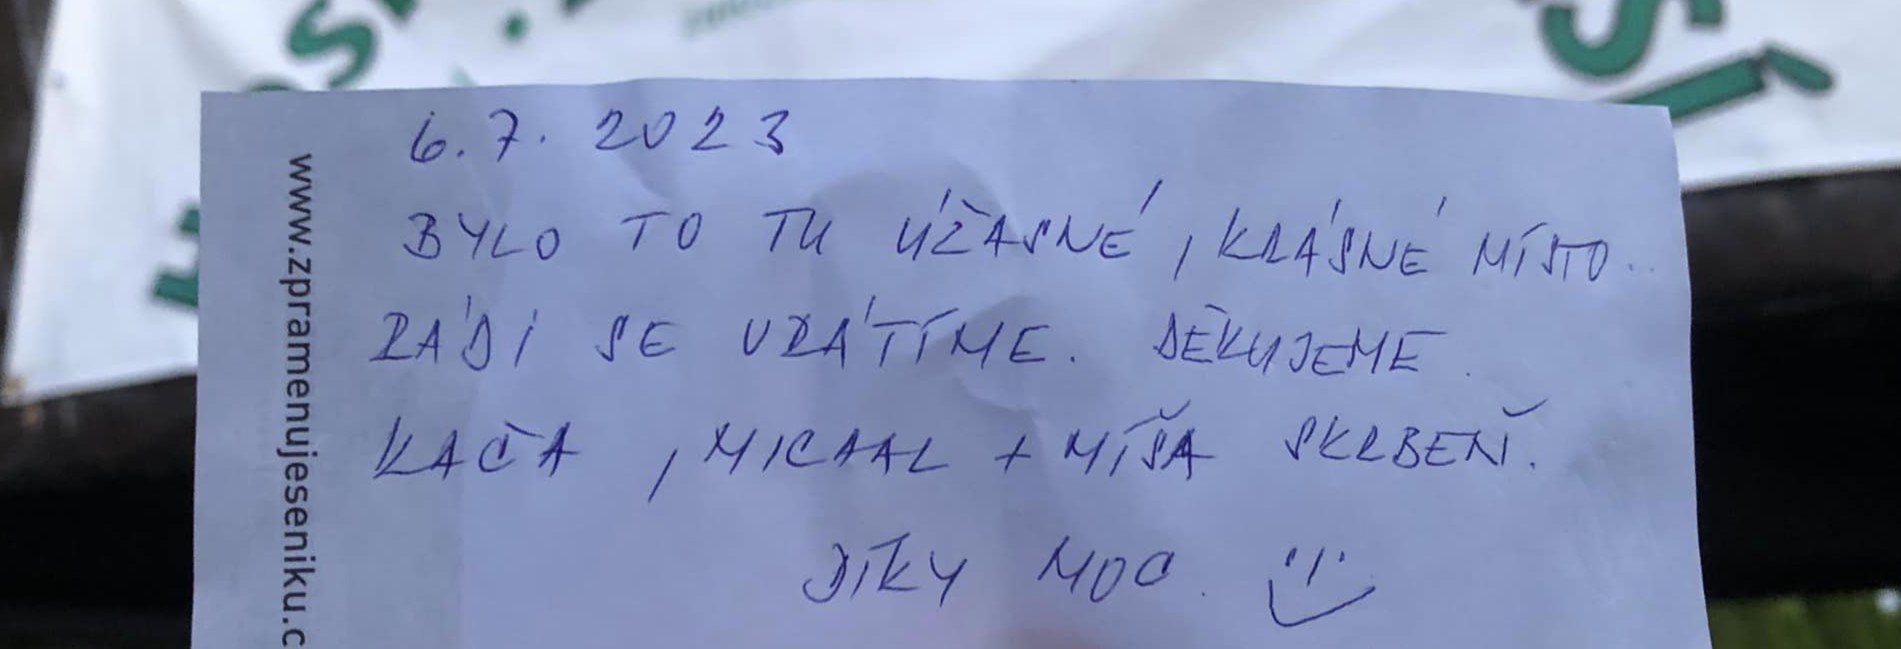 6.7. 2023
BYLO TO TU ÚŽASNÉ, KRÁSNÉ MÍSTO..
RÁDI SE VRÁTÍME. DĚKUJEME.
KAČA, MICHAL + MÍŠA SKRBEŇ.
DÍKY MOC.
www.zpramenujeseniku.c